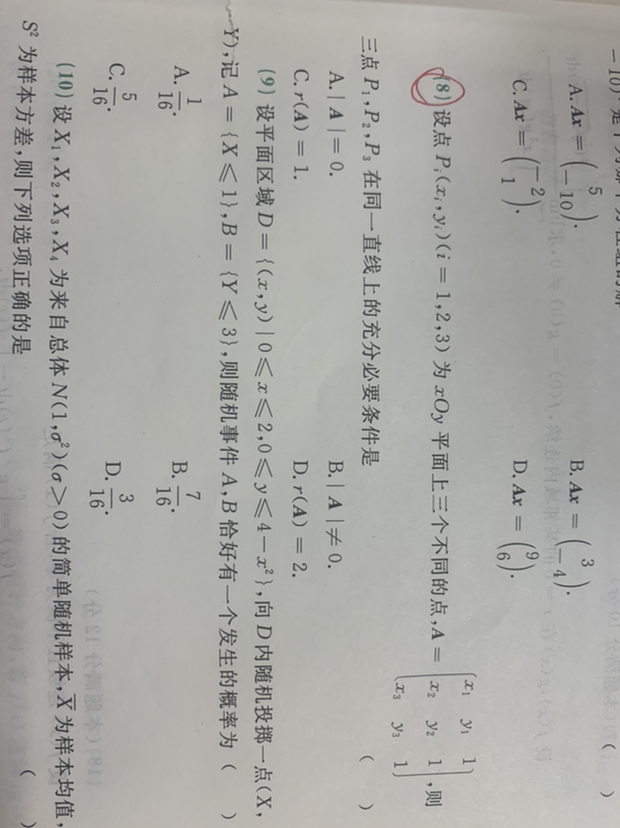 A. Ax = (5 -10).
B. Ax = (3 -4).
C. Ax = (-2 1).
D. Ax = (9 6).
(8) 设点 P_i(x_i, y_i)(i = 1,2,3) 为 xOy 平面上三个不同的点, A = (x₁ y₁ 1 x₂ y₂ 1 x₃ y₃ 1), 则
三点 P₁, P₂, P₃ 在同一直线上的充分必要条件是 ( )
A. | A | = 0.
B. | A | ≠ 0.
C. r(A) = 1.
D. r(A) = 2.
(9) 设平面区域 D = {(x, y) | 0 ≤ x ≤ 2, 0 ≤ y ≤ 4 - x²}, 向 D 内随机投掷一点 (X,
Y), 记 A = {X ≤ 1}, B = {Y ≤ 3}, 则随机事件 A, B 恰好有一个发生的概率为 ( )
A. 1/16.
B. 7/16.
C. 5/16.
D. 3/16.
(10) 设 X₁, X₂, X₃, X₄ 为来自总体 N(1, σ²)(σ > 0) 的简单随机样本, X̄ 为样本均值,
S² 为样本方差, 则下列选项正确的是 ( )